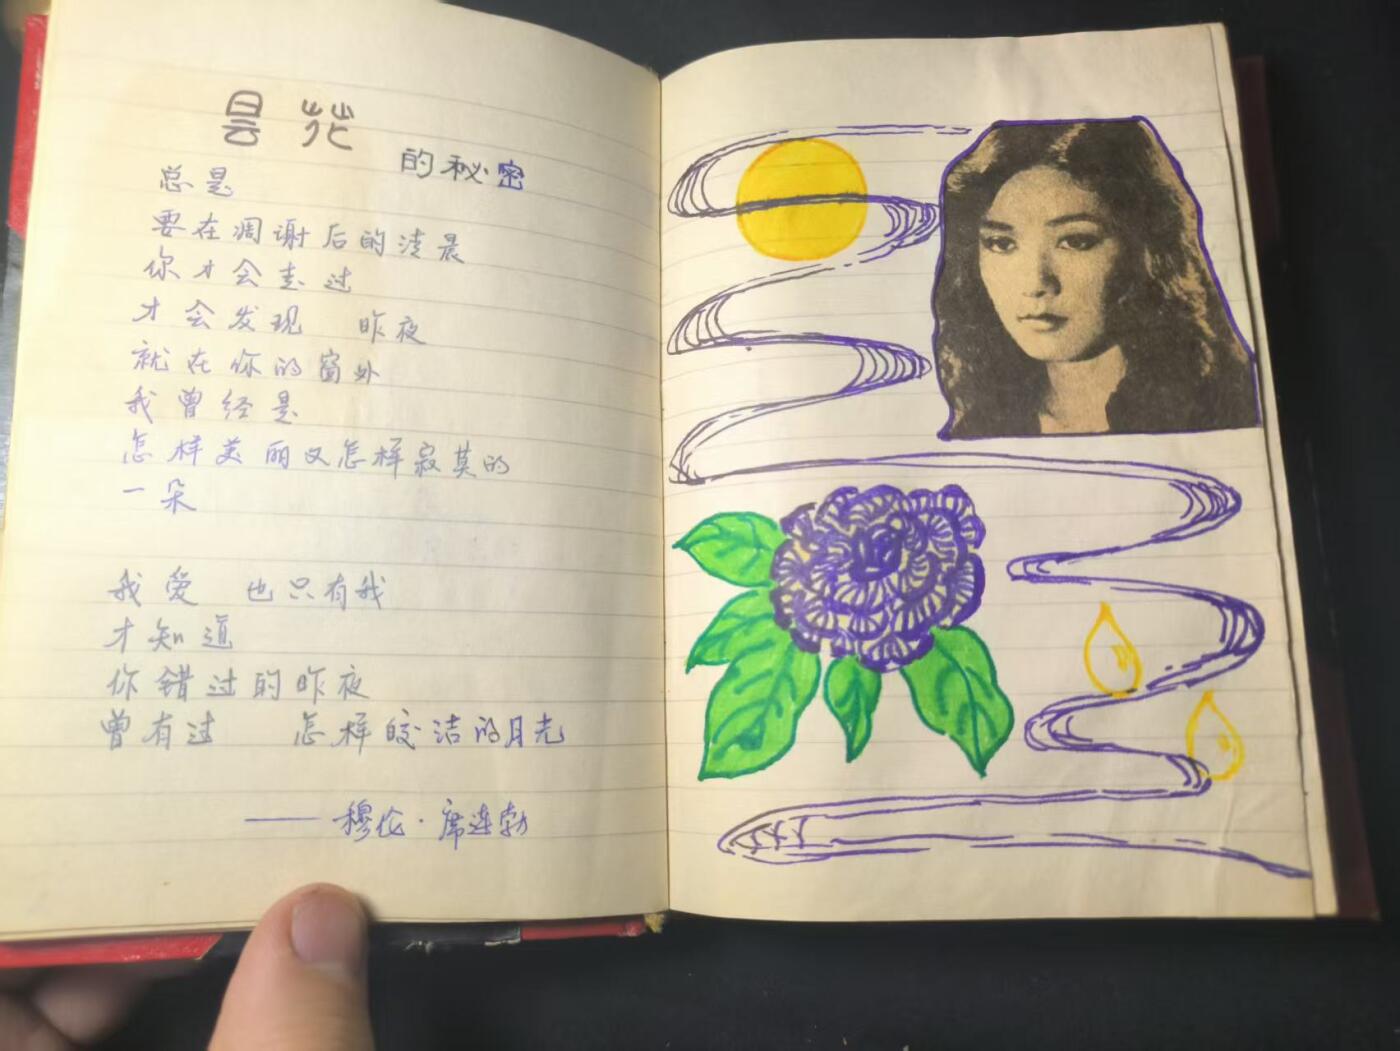 昙花
的秘密
总是
要在凋谢后的清晨
你才会走过
才会发现 昨夜
就在你的窗外
我曾经是
怎样美丽又怎样寂莫的
一朵
我爱 也只有我
才知道
你错过的昨夜
曾有过 怎样皎洁的月光
——穆伦·席连勃